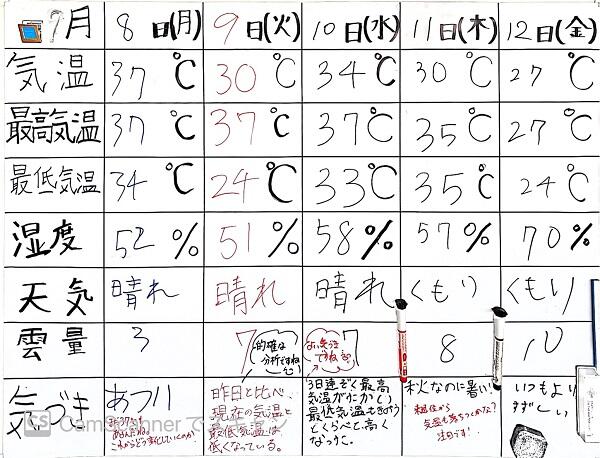 7月 8日(月) 9日(火) 10日(水) 11日(木) 12日(金)
気温 37℃ 30℃ 34℃ 30℃ 27℃
最高気温 37℃ 37℃ 37℃ 35℃ 27℃
最低気温 34℃ 24℃ 33℃ 35℃ 24℃
湿度 52% 51% 58% 57% 70%
天気 晴れ 晴れ 晴れ くもり くもり
雲量 3 7 7 8 10
的確な
分析ですね
気づき
あつい
昨日と比べ、
現在の気温と
最低気温は
低くなっている。
3日連ぞく最高
気温が
最低気温も
とくらべて高く
なった。
秋なのに暑い
気温も落ちつくかな?
注目です!
いつもより
すずしい
CS CamScanner でスキャン